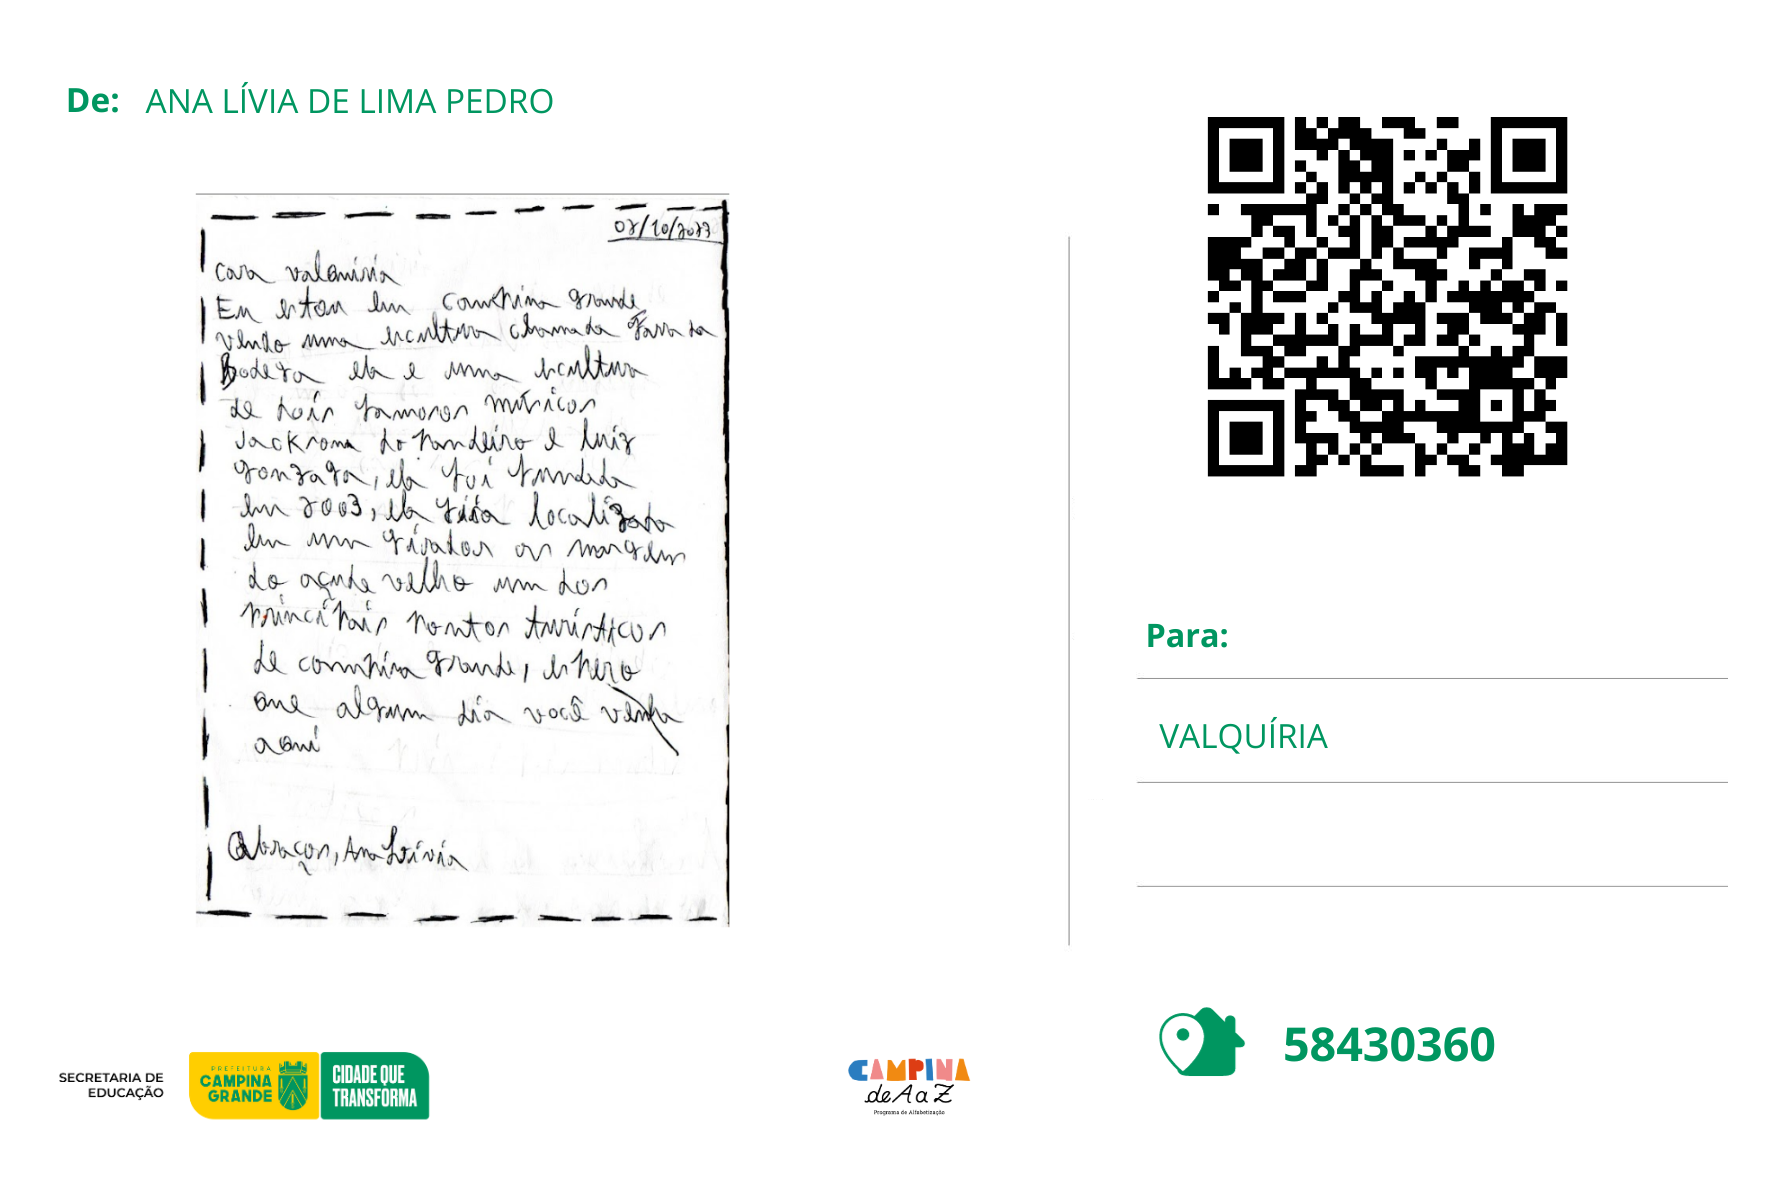 De: ANA LÍVIA DE LIMA PEDRO
02/10/2023
cara valquiria
Eu estou em campina grande
vendo uma escultura chamada farra da
Bodega ela e uma escultura
de dois famosos músicos
Jacksom do pandeiro e luiz
gonzaga, ela foi fundida
em 2003, ela fica localizada
em um girador as margem
do açude velho um dos
principais pontos turísticos
de campina grande, espero
que algum dia você venha
aqui
Abraços, Ana Lívia
Para:
VALQUÍRIA
58430360
SECRETARIA DE
EDUCAÇÃO
PREFEITURA
CAMPINA
GRANDE
CIDADE QUE
TRANSFORMA
CAMPINA
de A a Z
Programa de Alfabetização